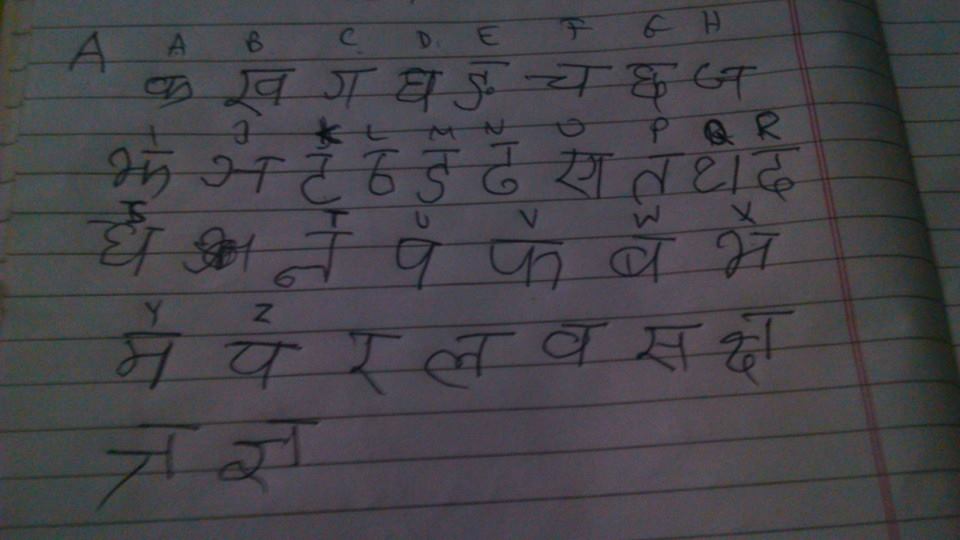 A A B C D E F G H
क ख ग घ ङ च छ ज
I J K L M N O P Q R
झ ञ ट ठ ड ढ ण त थ द
S T U V W X
ध न प फ ब भ
Y Z
म य र ल व स क्ष
त्र ज्ञ